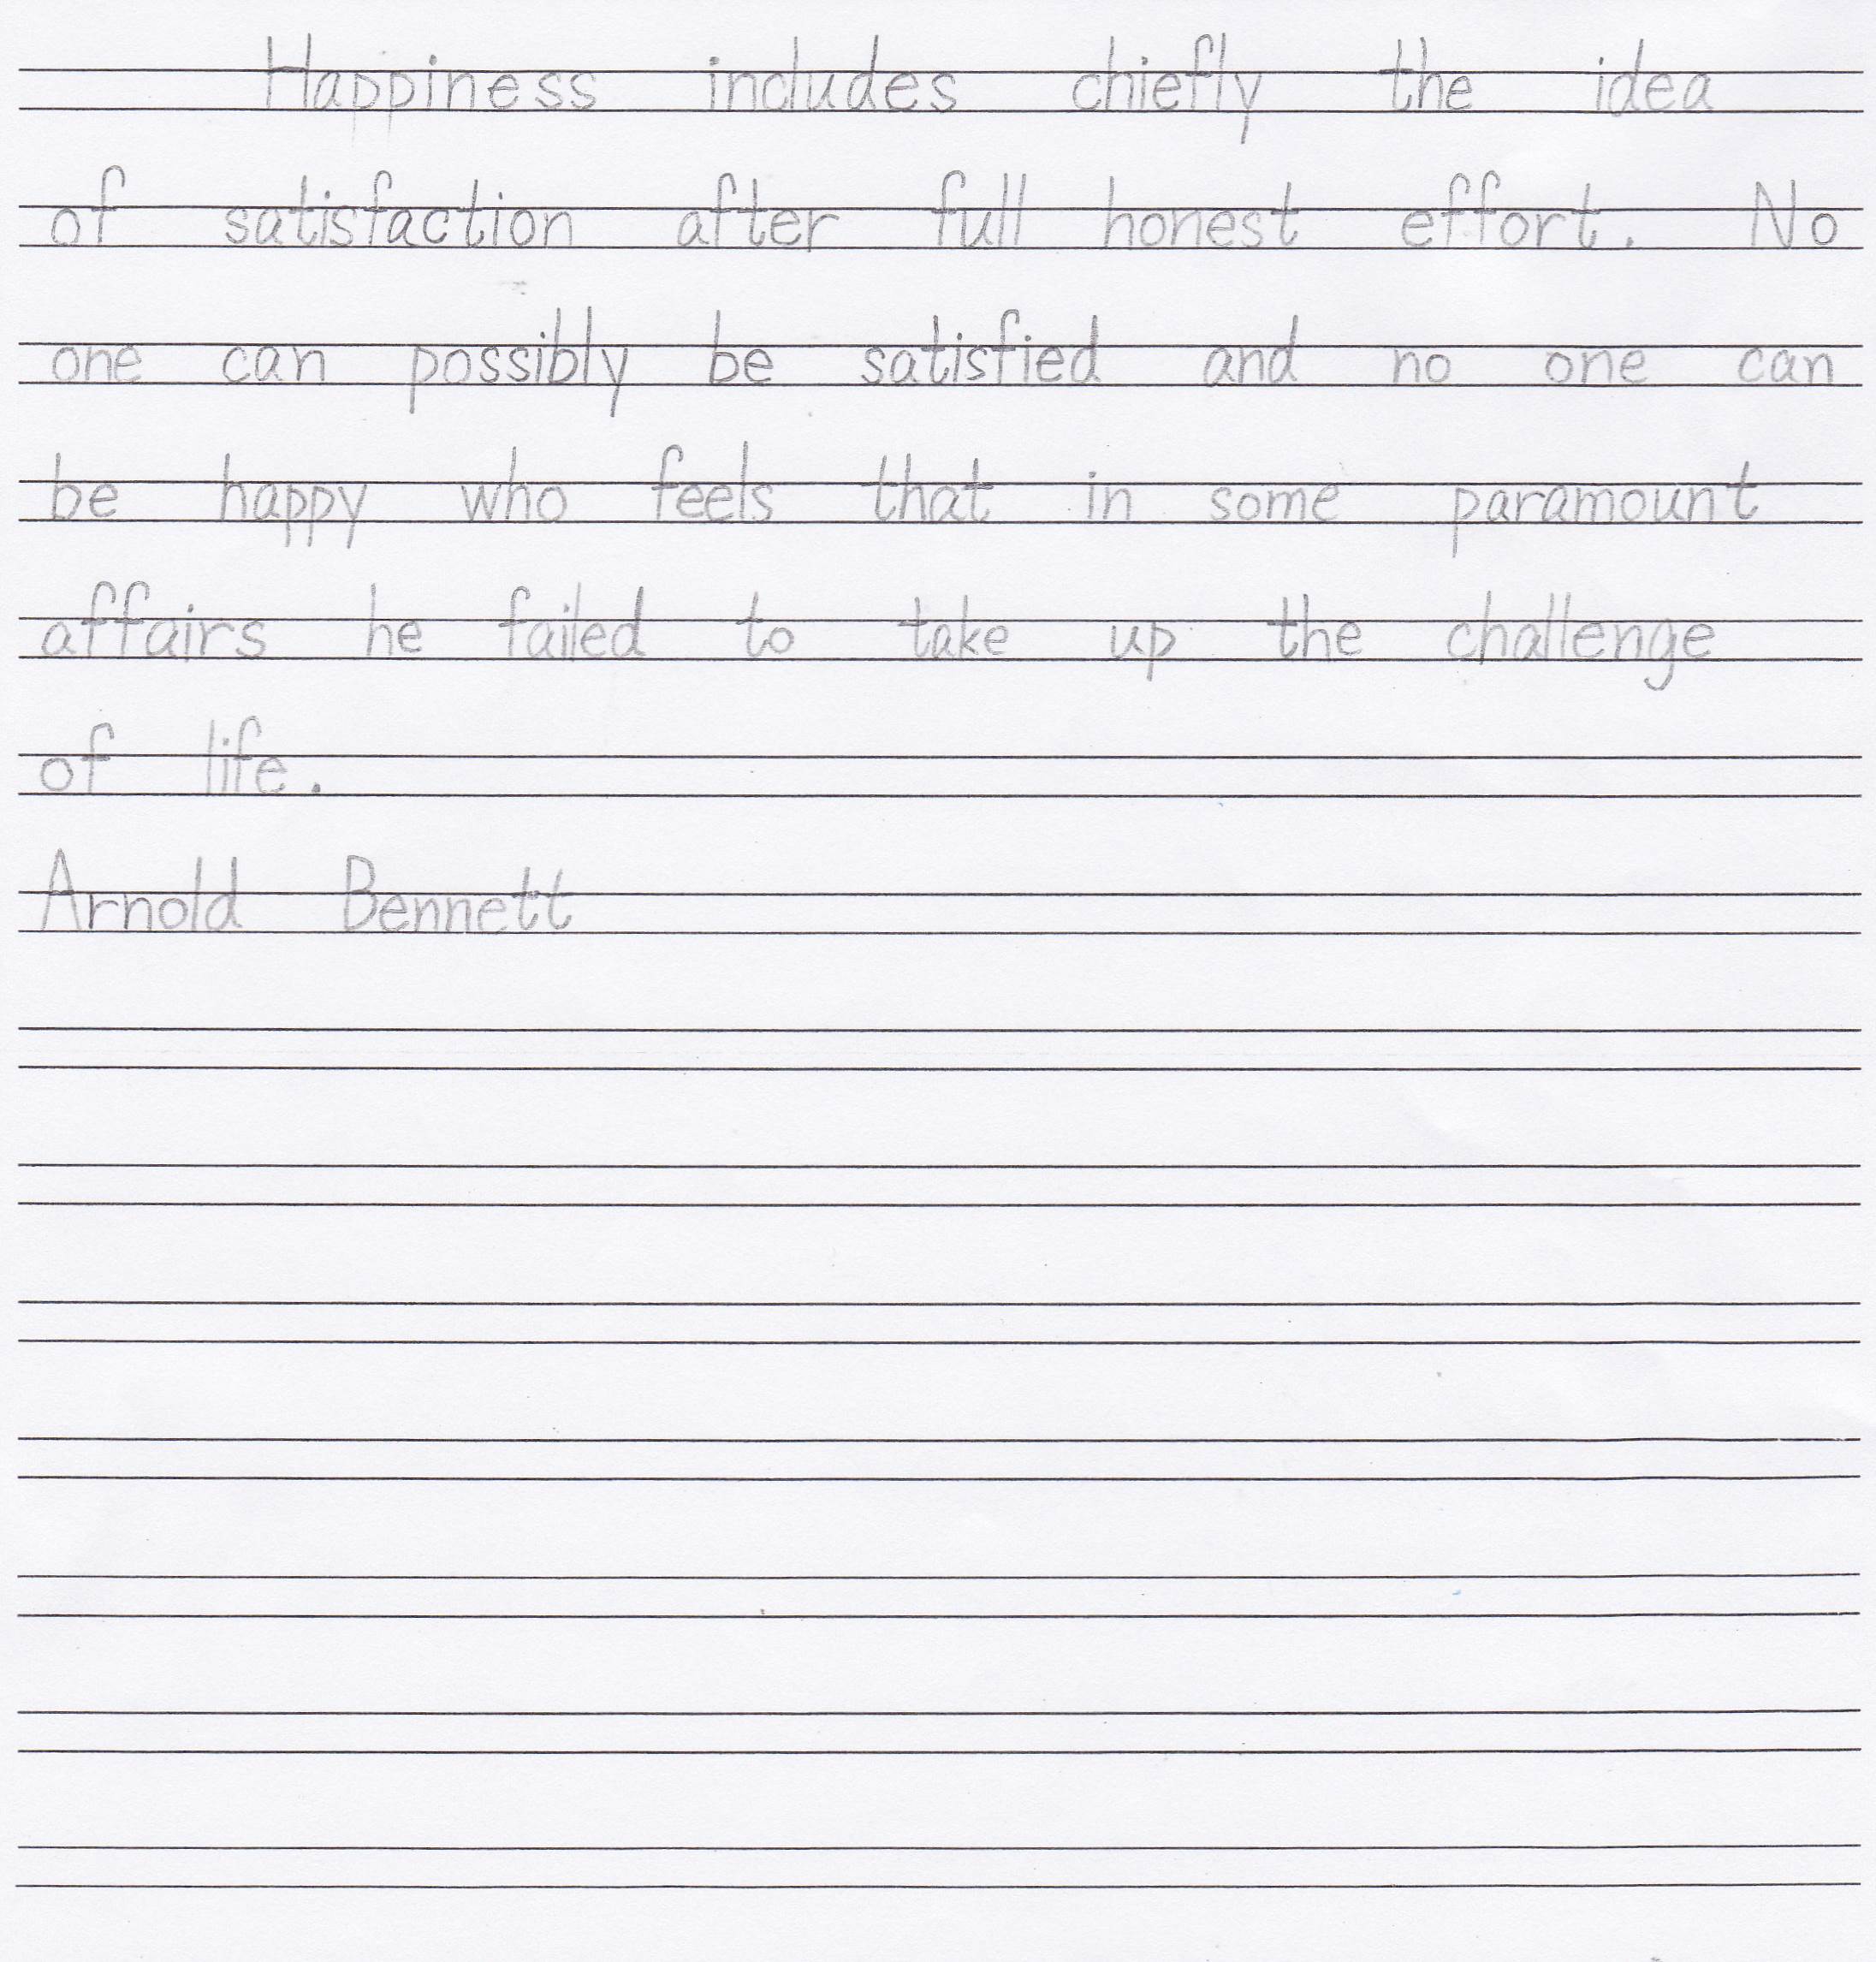 Happiness includes chiefly the idea
of satisfaction after full honest effort. No
one can possibly be satisfied and no one can
be happy who feels that in some paramount
affairs he failed to take up the challenge
of life.
Arnold Bennett